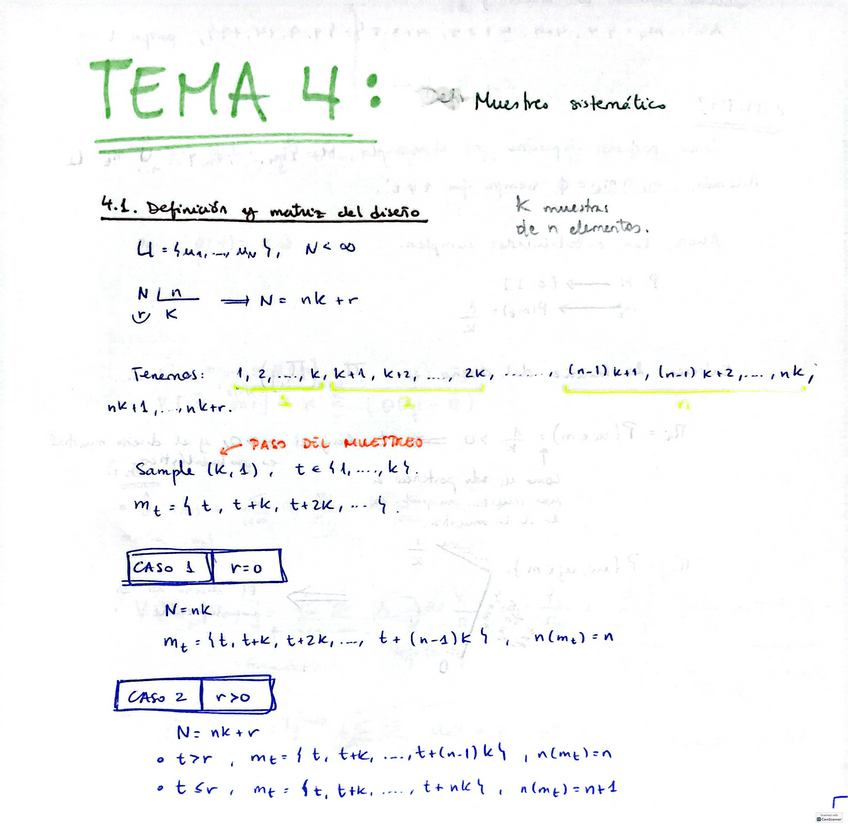 TEMA 4:
Def: Muestreo sistemático
4.1. Definición y matriz del diseño
K muestras
de n elementos.
U = {u1, ..., uN}, N < ∞
N | n ⟹ N = nk + r
r k
Tenemos: 1, 2, ..., k, k+1, k+2, ..., 2k, ......, (n-1)k+1, (n-1)k+2, ..., nk,
1 2 n
nk+1, ..., nk+r.
← PASO DEL MUESTREO
Sample (k, 1), t ∈ {1, ..., k}.
mt = {t, t+k, t+2k, ...}.
CASO 1 r=0
N=nk
mt = {t, t+k, t+2k, ..., t+(n-1)k}, n(mt)=n
CASO 2 r>0
N= nk+r
• t>r, mt = {t, t+k, ..., t+(n-1)k}, n(mt)=n
• t≤r, mt = {t, t+k, ...., t+nk}, n(mt)=n+1
CamScanner